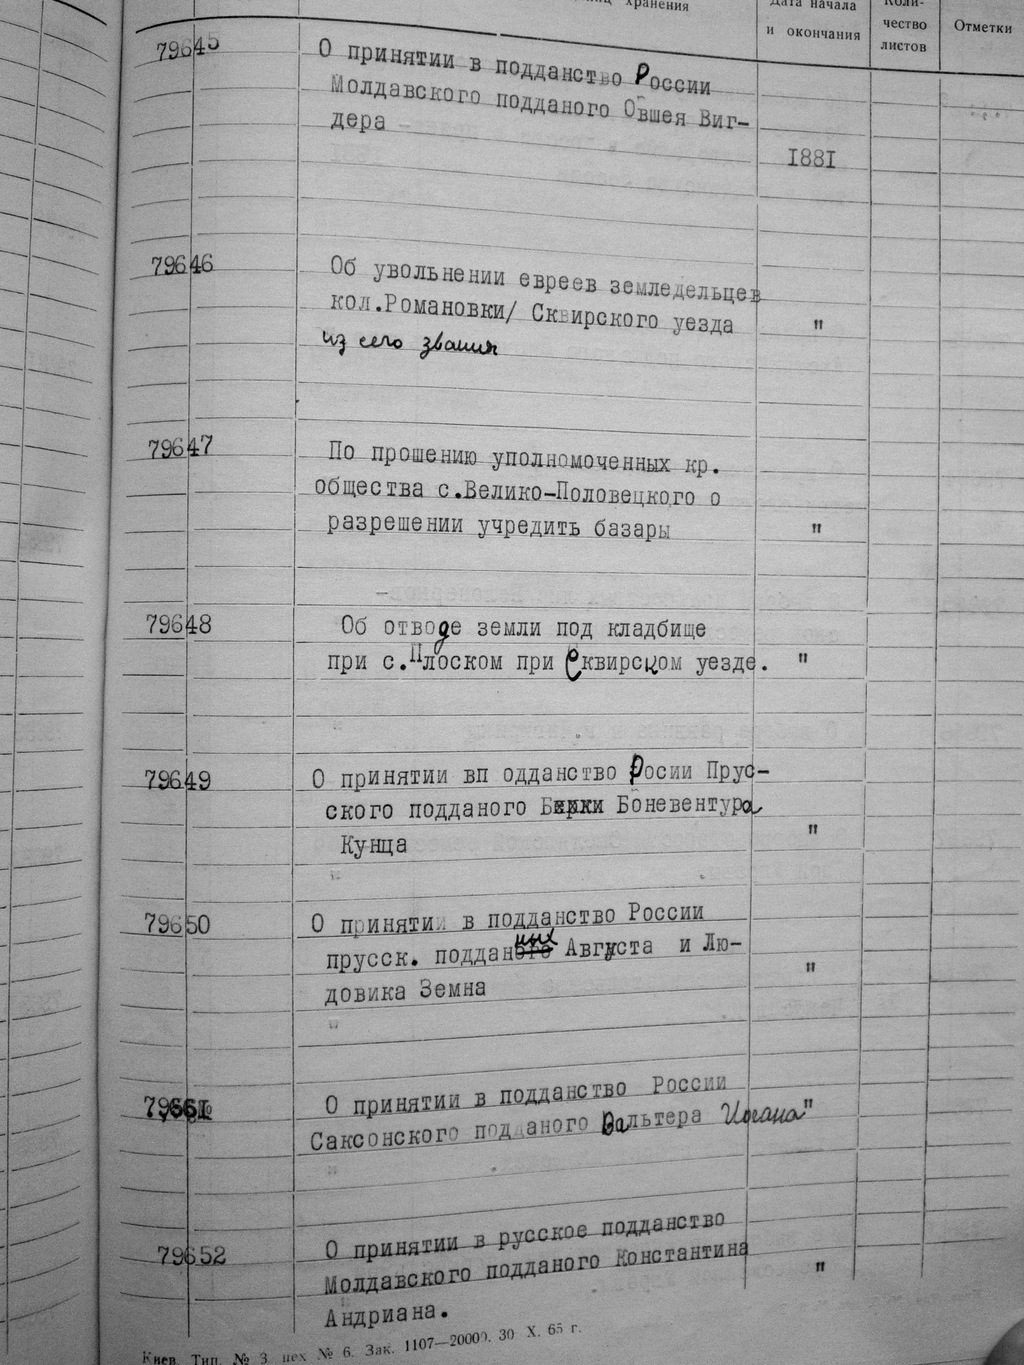 хранения
Дата начала
и окончания
Коли-
чество
листов
Отметки
79645
О принятии в подданство России
Молдавского подданого Овшея Виг-
дера
1881
79646
Об увольнении евреев земледельцев
кол.Романовки/ Сквирского уезда
"
из сего звания
79647
По прошению уполномоченных кр.
общества с.Велико-Половецкого о
разрешении учредить базары
"
79648
Об отводе земли под кладбище
при с.Плоском при Сквирском уезде. "
79649
О принятии вп одданство Росии Прус-
ского подданого Боневентура
Кунца
"
79650
О принятии в подданство России
прусск. подданных Августа и Лю-
довика Земна
"
О принятии в подданство России
Саксонского подданого Вальтера Иогана "
79652
О принятии в русское подданство
Молдавского подданого Константина
Андриана.
"
Киев. Тип. № 3. цех № 6. Зак. 1107—20000. 30 X. 65 г.